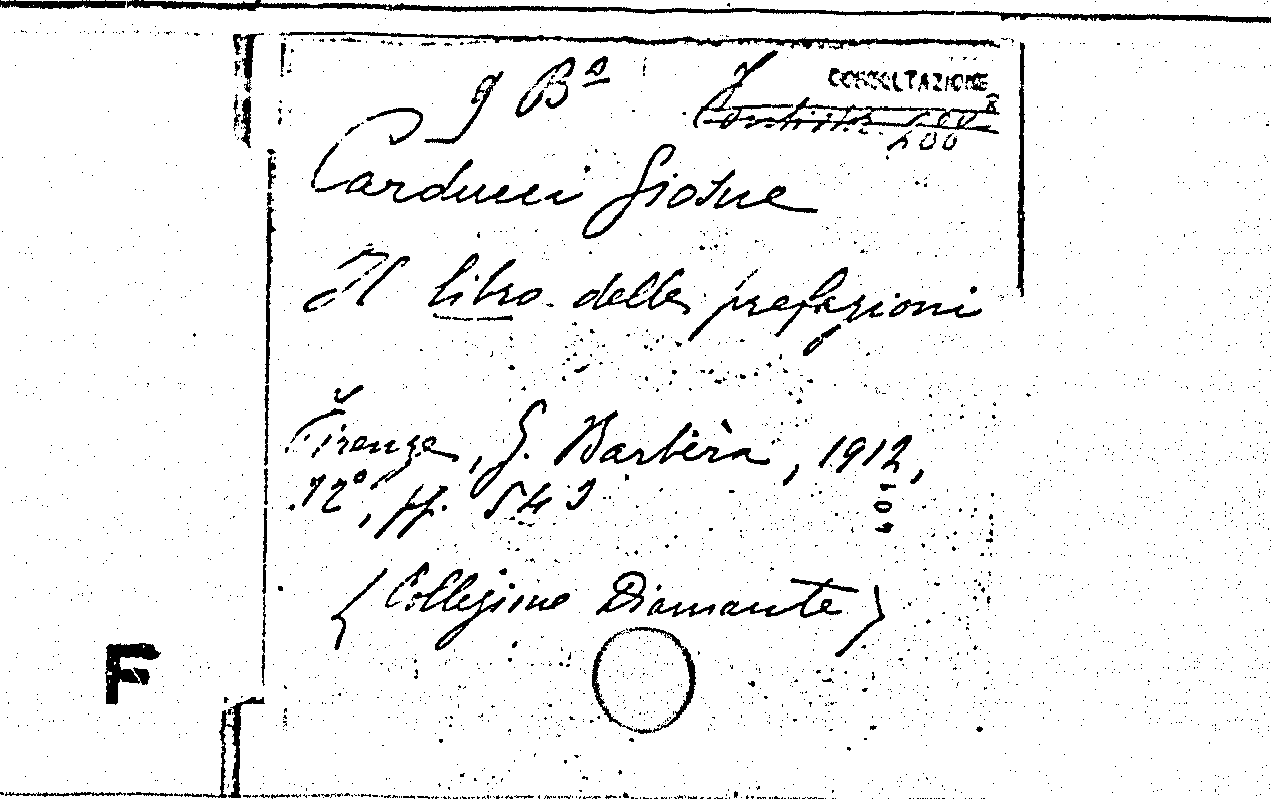 g Bª
CONSULTAZIONE
400
Carducci Giosue
Il libro delle prefazioni
Firenze, G. Barbèra, 1912,
12°, pp. 543
(Collezione Diamante)
F